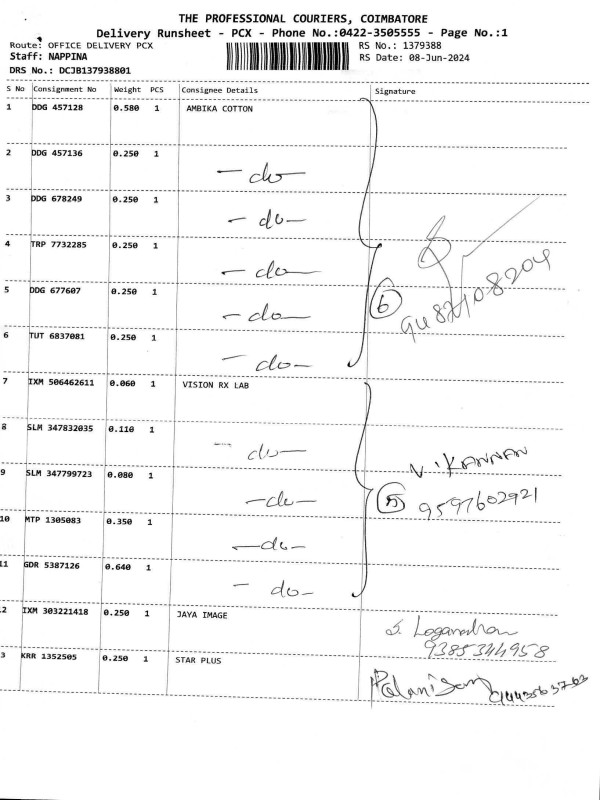 THE PROFESSIONAL COURIERS, COIMBATORE
Delivery Runsheet - PCX - Phone No.:0422-3505555 - Page No.:1
Route: OFFICE DELIVERY PCX
RS No.: 1379388
Staff: NAPPINA
RS Date: 08-Jun-2024
DRS No.: DCJB137938801
S No Consignment No Weight PCS Consignee Details Signature
1 DDG 457128 0.580 1 AMBIKA COTTON
2 DDG 457136 0.250 1 -do-
3 DDG 678249 0.250 1 -do-
4 TRP 7732285 0.250 1 -do-
5 DDG 677607 0.250 1 -do-
6
6 TUT 6837081 0.250 1 -do-
7 IXM 506462611 0.060 1 VISION RX LAB
8 SLM 347832035 0.110 1 -do-
N. KANNAN
9 SLM 347799723 0.080 1 -do-
5 9597602921
10 MTP 1305083 0.350 1 -do-
11 GDR 5387126 0.640 1 -do-
2 IXM 303221418 0.250 1 JAYA IMAGE
S. Loganathan
9385344958
3 KRR 1352505 0.250 1 STAR PLUS